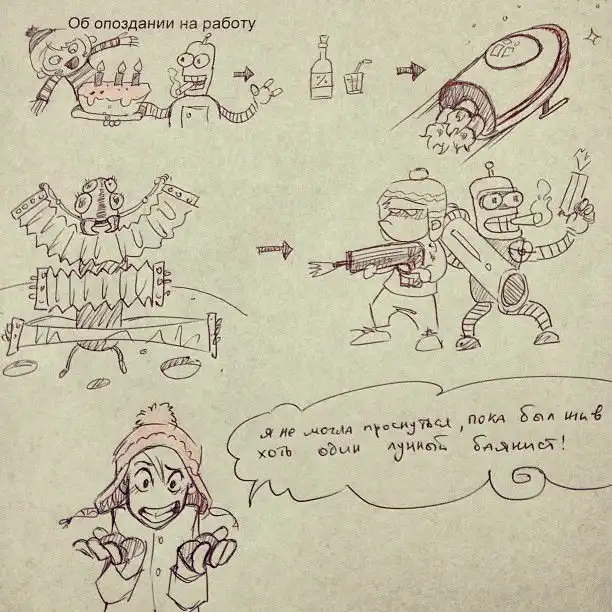 Об опоздании на работу
%
я не могла проснуться, пока был жив
хоть один лунный баянист!